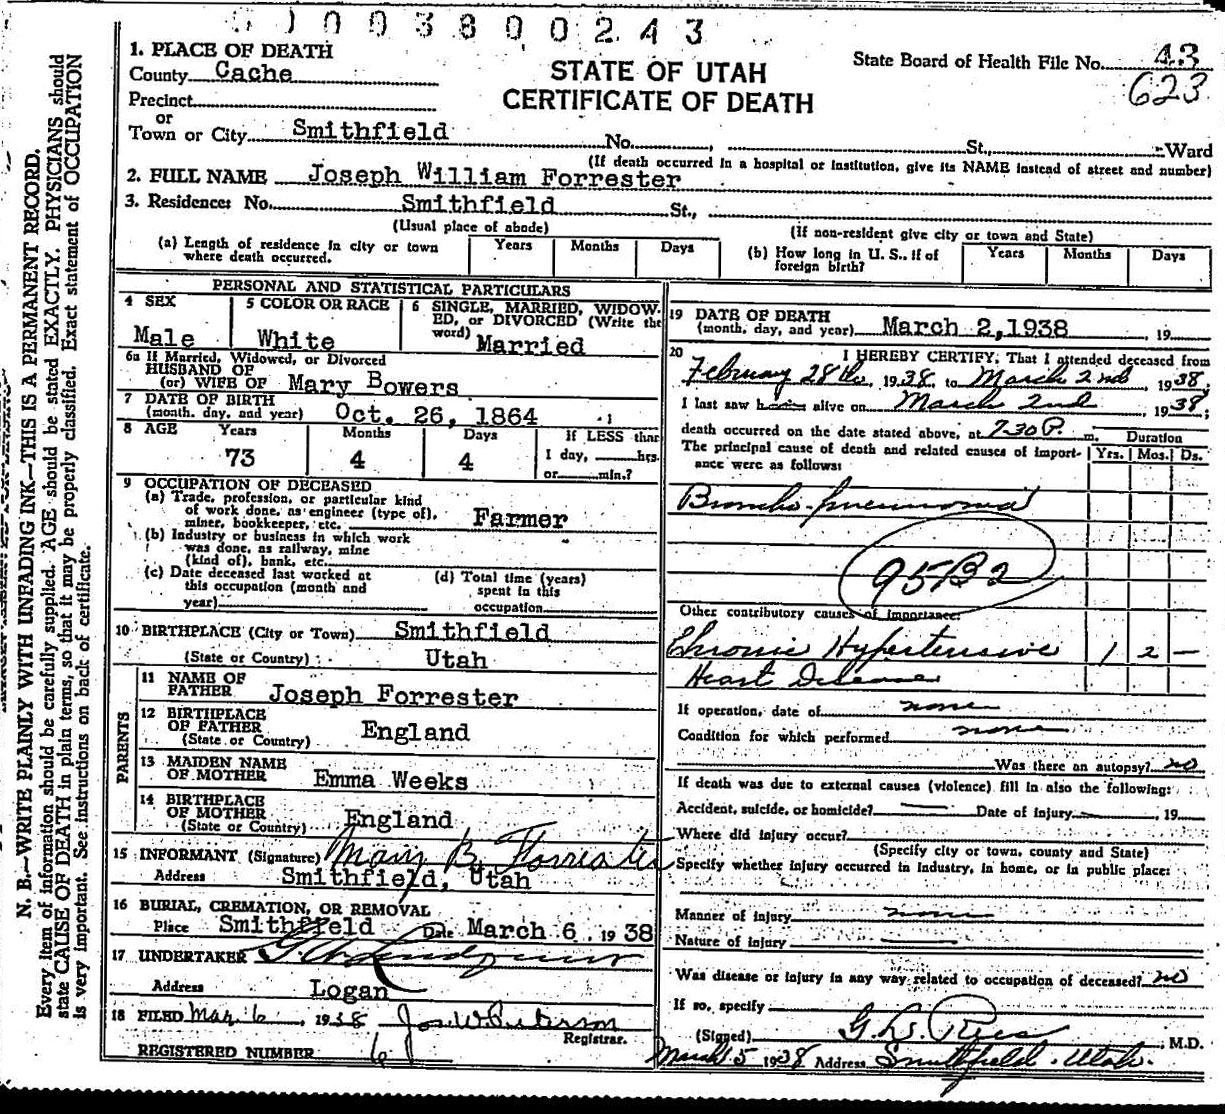 0 1 0 0 3 8 0 0 2 4 3
1. PLACE OF DEATH
County Cache
STATE OF UTAH
CERTIFICATE OF DEATH
State Board of Health File No. 43
623
Precinct
or
Town or City Smithfield No. , St., Ward
(If death occurred in a hospital or institution, give its NAME instead of street and number)
2. FULL NAME Joseph William Forrester
3. Residence: No. Smithfield St.,
(Usual place of abode) (If non-resident give city or town and State)
(a) Length of residence in city or town where death occurred. Years Months Days
(b) How long in U. S., if of foreign birth? Years Months Days
PERSONAL AND STATISTICAL PARTICULARS
4 SEX
Male
5 COLOR OR RACE
White
6 SINGLE, MARRIED, WIDOW-
ED, or DIVORCED (Write the
word) Married
6a If Married, Widowed, or Divorced
HUSBAND OF
(or) WIFE OF Mary Bowers
7 DATE OF BIRTH
(month, day, and year) Oct. 26, 1864
8 AGE Years Months Days If LESS than
73 4 4 1 day, hrs.
or min.?
9 OCCUPATION OF DECEASED
(a) Trade, profession, or particular kind
of work done, as engineer (type of),
miner, bookkeeper, etc. Farmer
(b) Industry or business in which work
was done, as railway, mine
(kind of), bank, etc.
(c) Date deceased last worked at
this occupation (month and
year)
(d) Total time (years)
spent in this
occupation
10 BIRTHPLACE (City or Town) Smithfield
(State or Country) Utah
PARENTS
11 NAME OF
FATHER Joseph Forrester
12 BIRTHPLACE
OF FATHER England
(State or Country)
13 MAIDEN NAME
OF MOTHER Emma Weeks
14 BIRTHPLACE
OF MOTHER
(State or Country) England
15 INFORMANT (Signature) Mary B. Forrester
Address Smithfield, Utah
16 BURIAL, CREMATION, OR REMOVAL
Place Smithfield Date March 6, 1938
17 UNDERTAKER
Address Logan
18 FILED Mar. 6, 1938 Jos. W. Peterson
Registrar.
REGISTERED NUMBER 6
19 DATE OF DEATH
(month, day, and year) March 2, 1938 , 19
20 I HEREBY CERTIFY, That I attended deceased from
February 28th, 1938, to March 2nd 1938;
I last saw h alive on March 2nd, 1938;
death occurred on the date stated above, at 7:30 P. m.
The principal cause of death and related causes of import-
ance were as follows:
Duration
Yrs. Mos. Ds.
Broncho-pneumonia
95B2
Other contributory causes of importance:
Chronic Hypertensive 1 2 —
Heart Disease
If operation, date of none
Condition for which performed none
Was there an autopsy? no
If death was due to external causes (violence) fill in also the following:
Accident, suicide, or homicide? — Date of injury — , 19
Where did injury occur?
(Specify city or town, county and State)
Specify whether injury occurred in industry, in home, or in public place:
Manner of injury none
Nature of injury —
Was disease or injury in any way related to occupation of deceased? no
If so, specify
(Signed) G. L. Rees M.D.
March 5 1938 Address Smithfield, Utah.
N. B.—WRITE PLAINLY WITH UNFADING INK—THIS IS A PERMANENT RECORD.
Every item of information should be carefully supplied. AGE should be stated EXACTLY. PHYSICIANS should
state CAUSE OF DEATH in plain terms, so that it may be properly classified. Exact statement of OCCUPATION
is very important. See instructions on back of certificate.